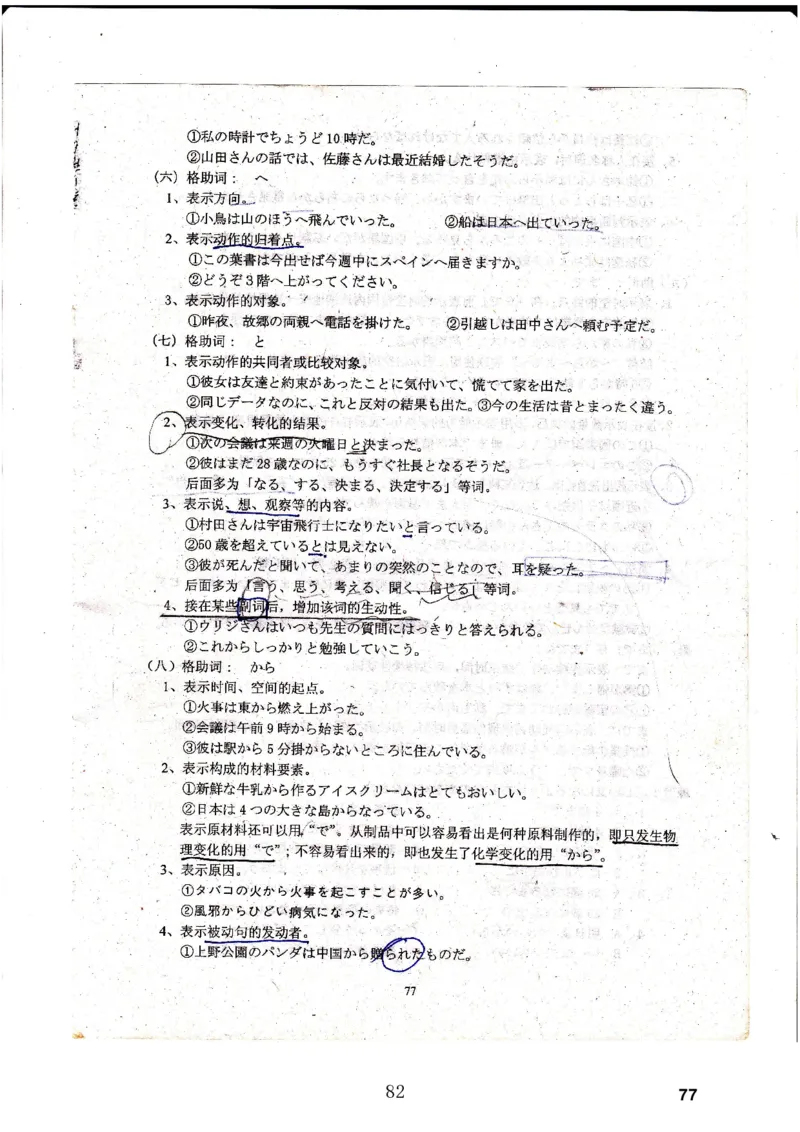 ①私の時計でちょうど10時だ。
②山田さんの話では、佐藤さんは最近結婚したそうだ。
(六) 格助词： へ
1、表示方向。
①小鳥は山のほうへ飛んでいった。 ②船は日本へ出ていった。
2、表示动作的归着点。
①この葉書は今出せば今週中にスペインへ届きますか。
②どうぞ3階へ上がってください。
3、表示动作的对象。
①昨夜、故郷の両親へ電話を掛けた。 ②引越しは田中さんへ頼む予定だ。
(七) 格助词： と
1、表示动作的共同者或比较对象。
①彼女は友達と約束があったことに気付いて、慌てて家を出た。
②同じデータなのに、これと反対の結果も出た。③今の生活は昔とまったく違う。
2、表示变化、转化的结果。
①次の会議は来週の火曜日と决まった。
②彼はまだ28歳なのに、もうすぐ社長となるそうだ。
后面多为「なる、する、決まる、決定する」等词。
3、表示说、想、观察等的内容。
①村田さんは宇宙飛行士になりたいと言っている。
②50歳を超えているとは見えない。
③彼が死んだと聞いて、あまりの突然のことなので、耳を疑った。
后面多为「言う、思う、考える、聞く、信じる」等词。
4、接在某些副词后，增加该词的生动性。
①ウリジさんはいつも先生の質問にはっきりと答えられる。
②これからしっかりと勉強していこう。
(八) 格助词： から
1、表示时间、空间的起点。
①火事は東から燃え上がった。
②会議は午前9時から始まる。
③彼は駅から5分掛からないところに住んでいる。
2、表示构成的材料要素。
①新鮮な牛乳から作るアイスクリームはとてもおいしい。
②日本は4つの大きな島からなっている。
表示原材料还可以用“で”。从制品中可以容易看出是何种原料制作的，即只发生物
理变化的用“で”；不容易看出来的，即也发生了化学变化的用“から”。
3、表示原因。
①タバコの火から火事を起こすことが多い。
②風邪からひどい病気になった。
4、表示被动句的发动者。
①上野公園のパンダは中国から贈られたものだ。
77
82
77